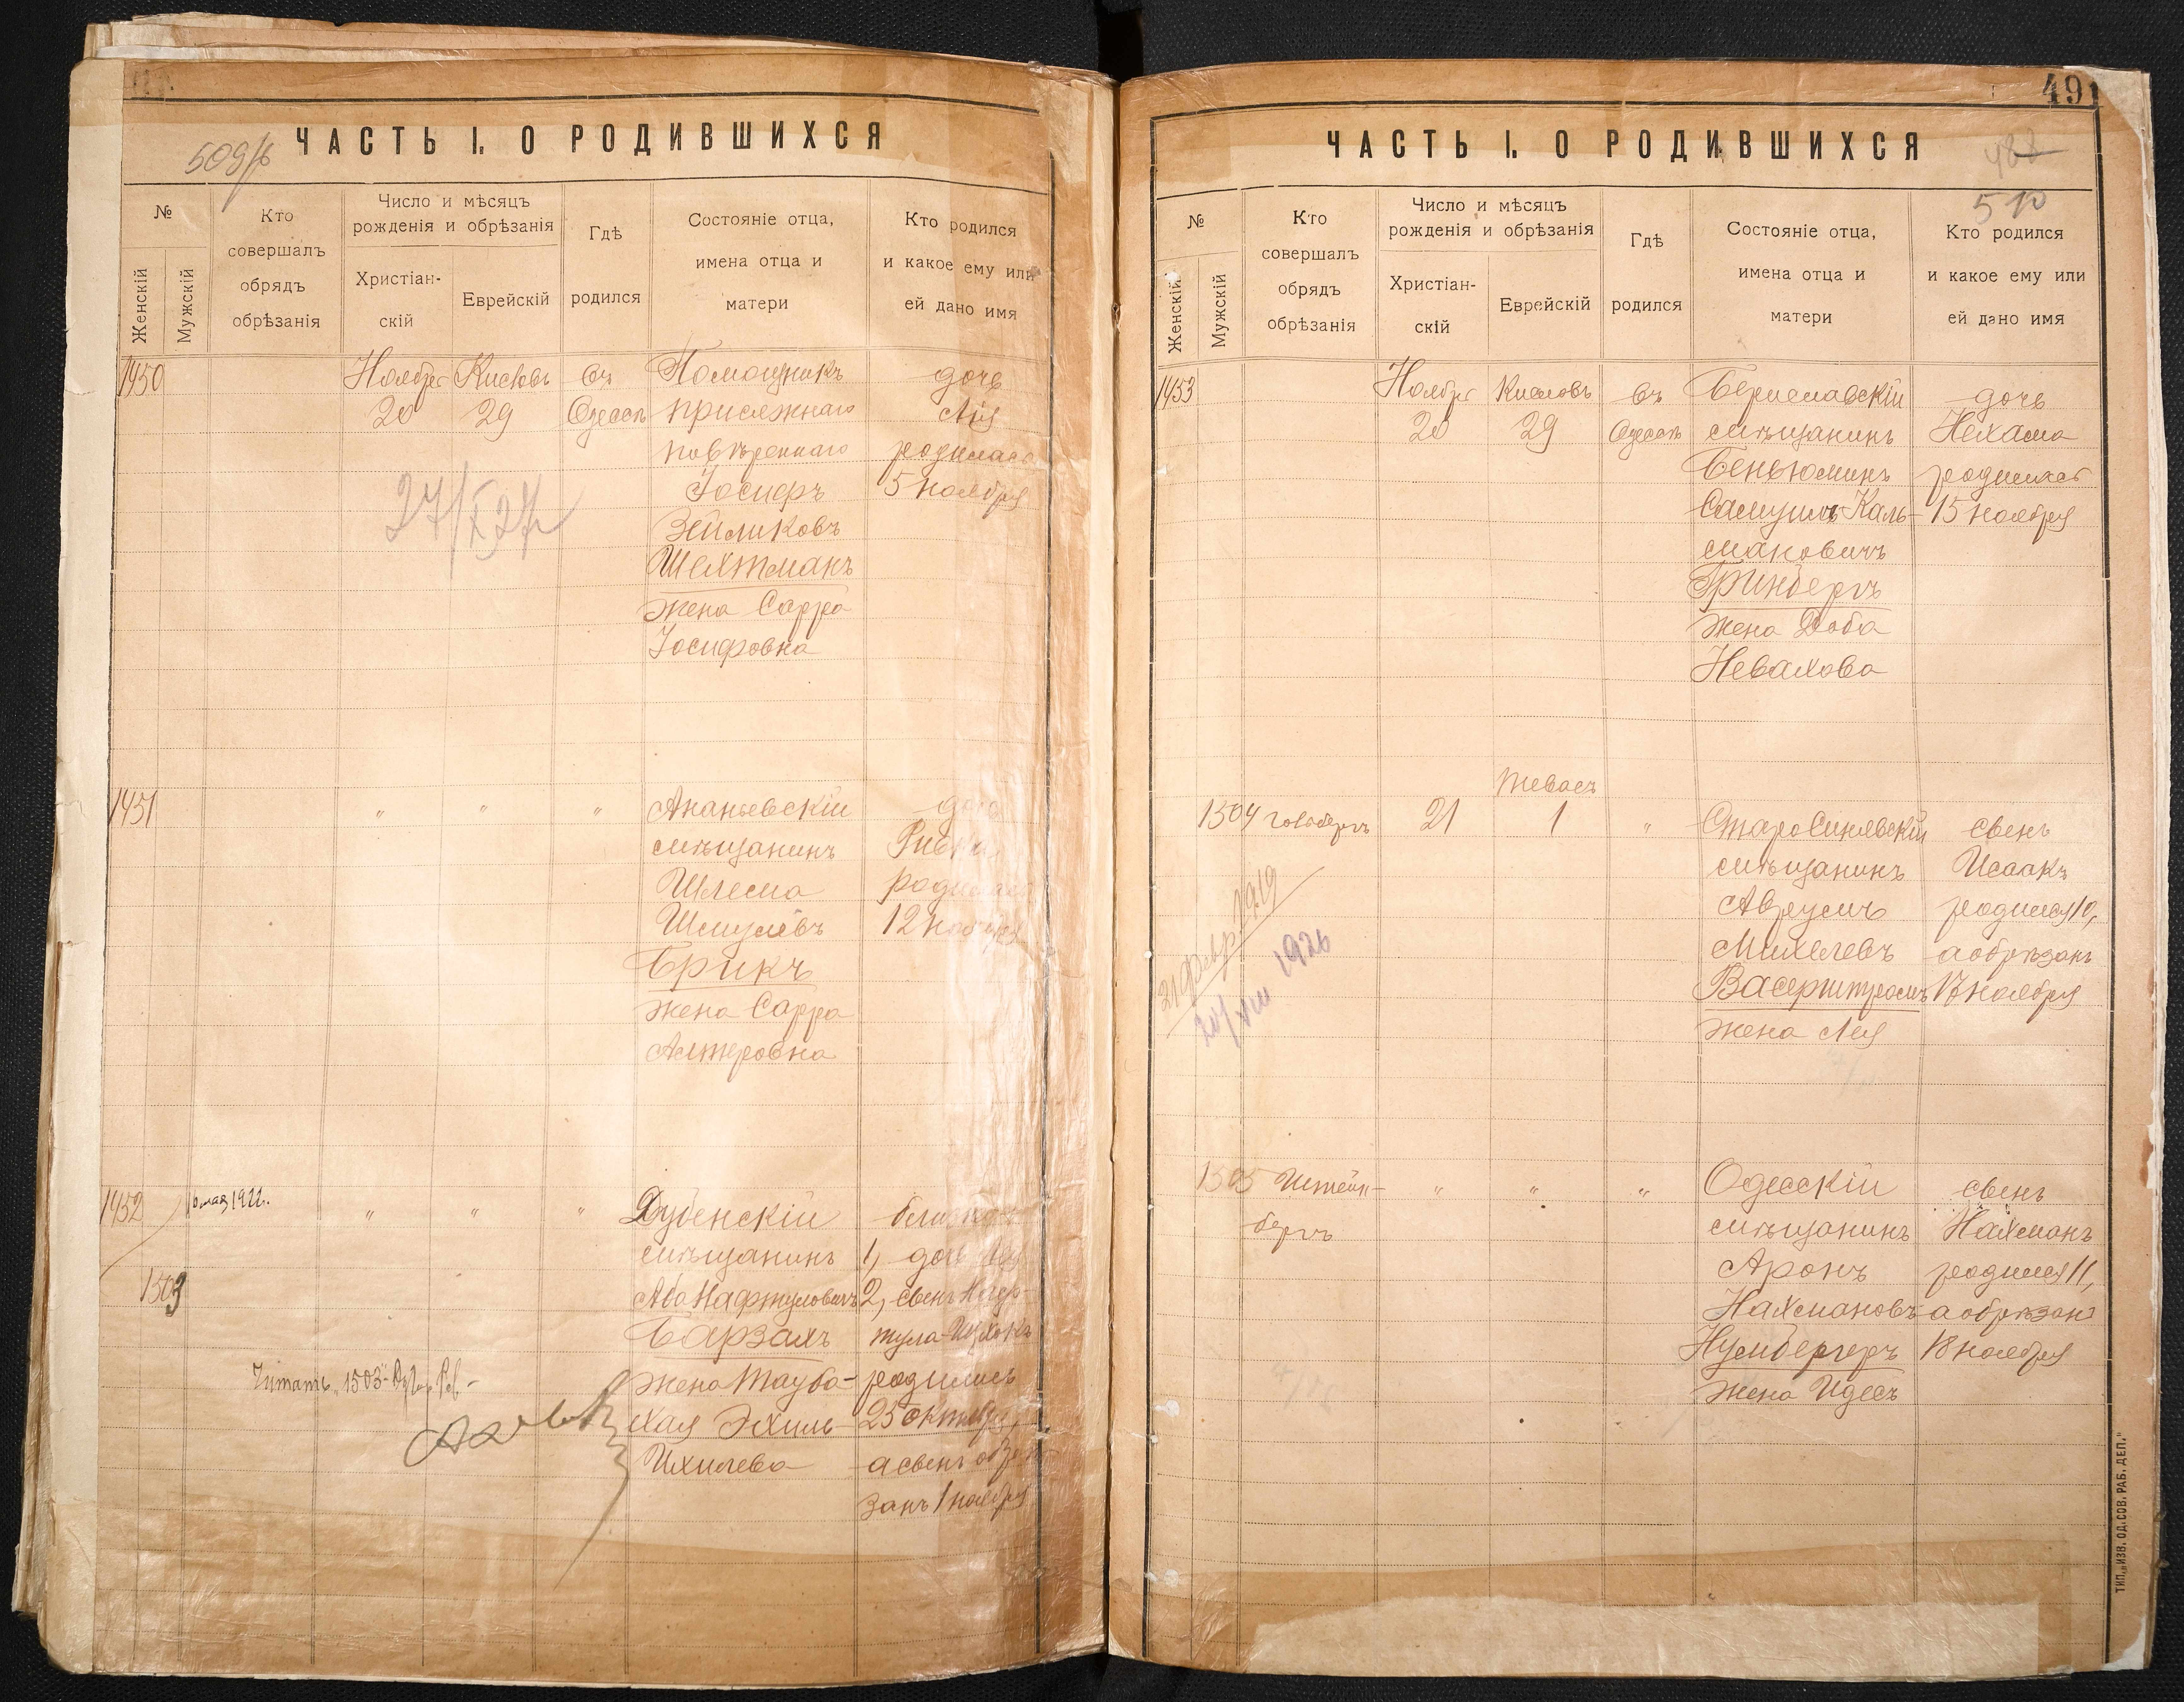 ЧАСТЬ I. О РОДИВШИХСЯ
509
№
Женскій
Мужскій
Кто
совершалъ
обрядъ
обрѣзанія
Число и мѣсяцъ
рожденія и обрѣзанія
Христіан-
скій
Еврейскій
Гдѣ
родился
Состояніе отца,
имена отца и
матери
Кто родился
и какое ему или
ей дано имя
1450
Ноября
20
Кислевъ
29
въ
Одессѣ
Помощникъ
присяжнаго
повѣреннаго
Іосифъ
Зейликовъ
Шехтманъ
жена Сарра
Іосифовна
дочь
Лія
родилась
5 ноября
1451
" " "
Ананьевскій
мѣщанинъ
Шлема
Шмулевъ
Брикъ
жена Сарра
Алтеровна
Ривка
родилась
12 ноября
1452
1503
мая 1922.
" " "
Дубенскій
мѣщанинъ
Аба Нафтуловичъ
Барзахъ
жена Тауба-
Хая Эхиль-
Ихилева
1, дочь
2, сынъ Наф-
тула-Ицхокъ
родились
25 октября,
а сынъ обрѣ-
занъ 1 ноября
Читать "1503"
491
ЧАСТЬ I. О РОДИВШИХСЯ
488
510
№
Женскій
Мужскій
Кто
совершалъ
обрядъ
обрѣзанія
Число и мѣсяцъ
рожденія и обрѣзанія
Христіан-
скій
Еврейскій
Гдѣ
родился
Состояніе отца,
имена отца и
матери
Кто родился
и какое ему или
ей дано имя
1453
Ноября
20
Кислевъ
29
въ
Одессѣ
Бериславскій
мѣщанинъ
Беньюминъ
Самуилъ Каль-
мановичъ
Гринбергъ
жена Доба
Невахова
дочь
Нехама
родилась
15 ноября
1504
21
Тевасъ
1
"
СтароСинявскій
мѣщанинъ
Аврумъ
Михелевъ
Васерштромъ
жена Лея
сынъ
Исаакъ
родился 10,
а обрѣзанъ
17 ноября
21 февр. 1919
1926
1505
Штейн-
бергъ
" " "
Одесскій
мѣщанинъ
Аронъ
Нахмановъ
Нумбергеръ
жена Идесъ
сынъ
Нахманъ
родился 11,
а обрѣзанъ
18 ноября
ТИП. „ИЗВ. ОД. СОВ. РАБ. ДЕП."